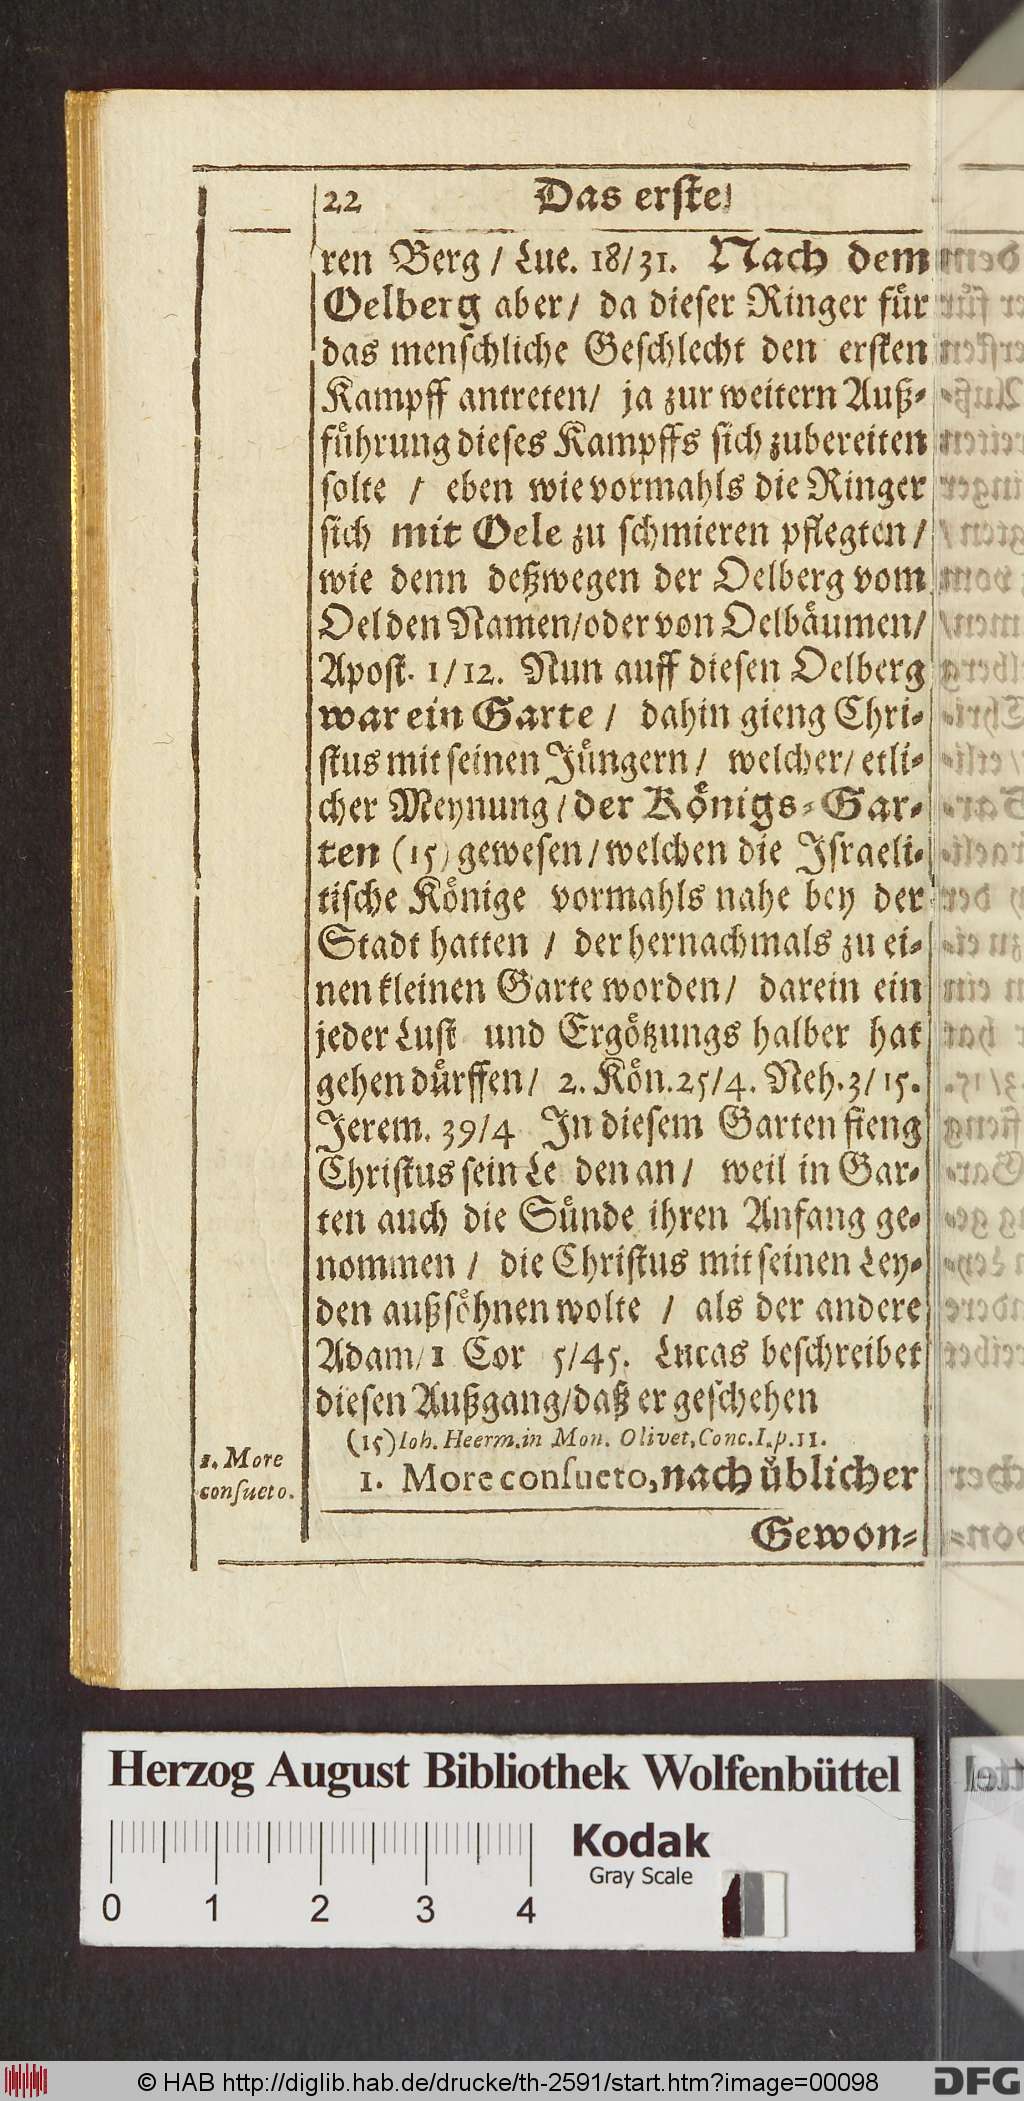 22 Das erste
ren Berg / Luc. 18/31. Nach dem
Oelberg aber / da dieser Ringer fuͤr
das menschliche Geschlecht den ersten
Kampff antreten / ja zur weitern Auß-
fuͤhrung dieses Kampffs sich zubereiten
solte / eben wie vormahls die Ringer
sich mit Oele zu schmieren pflegten /
wie denn deßwegen der Oelberg vom
Oel den Namen / oder von Oelbaͤumen /
Apost. 1/12. Nun auff diesen Oelberg
war ein Garte / dahin gieng Chri-
stus mit seinen Juͤngern / welcher / etli-
cher Meynung / der Koͤnigs-Gar-
ten (15) gewesen / welchen die Israeli-
tische Koͤnige vormahls nahe bey der
Stadt hatten / der hernachmals zu ei-
nen kleinen Garte worden / darein ein
jeder Lust und Ergoͤtzungs halber hat
gehen duͤrffen / 2. Koͤn. 25/4. Neh. 3/15.
Jerem. 39/4 In diesem Garten fieng
Christus sein Le den an / weil in Gar-
ten auch die Suͤnde ihren Anfang ge-
nommen / die Christus mit seinen Ley-
den außsoͤhnen wolte / als der andere
Adam / 1 Cor 5/45. Lucas beschreibet
diesen Außgang / daß er geschehen
(15) Ioh. Heerm. in Mon. Olivet, Conc. I. p. 11.
1. More consueto.
1. More consueto, nach uͤblicher
Gewon-
Herzog August Bibliothek Wolfenbüttel
Kodak
Gray Scale
0 1 2 3 4
© HAB http://diglib.hab.de/drucke/th-2591/start.htm?image=00098
DFG